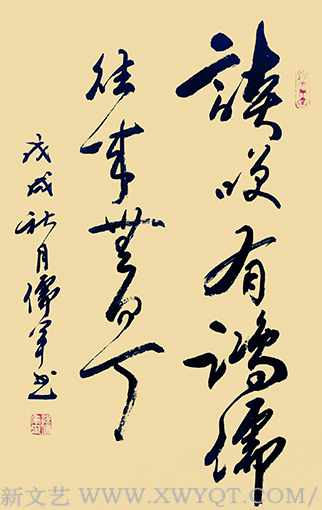 談咲有鴻儒
往来無白丁
戊戌秋月儒军书
新文艺 WWW.XWYQT.COM/